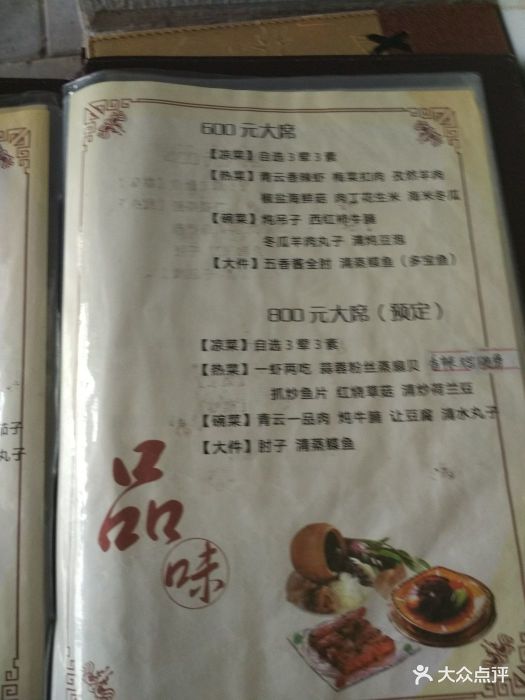 600元大席
【凉菜】自选3荤3素
【热菜】青云香辣虾 梅菜扣肉 孜然羊肉
椒盐海鲜菇 肉丁花生米 海米冬瓜
【碗菜】炖吊子 西红柿牛腩
冬瓜羊肉丸子 清炖豆泡
【大件】五香酱全肘 清蒸鲽鱼(多宝鱼)
800元大席(预定)
【凉菜】自选3荤3素
【热菜】一虾两吃 蒜蓉粉丝蒸扇贝
抓炒鱼片 红烧草菇 清炒荷兰豆
【碗菜】青云一品肉 炖牛腩 让豆腐 清水丸子
【大件】肘子 清蒸鲽鱼
茄子
丸子
品
味
大众点评